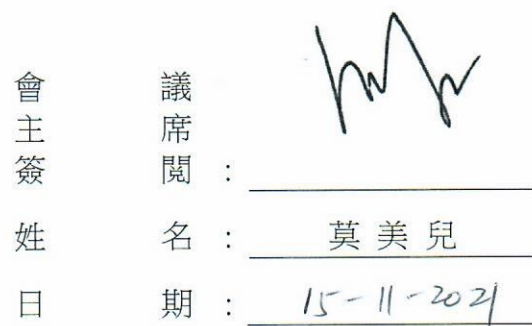 會議
主席
簽閱：
姓名： 莫美兒
日期： 15-11-2021